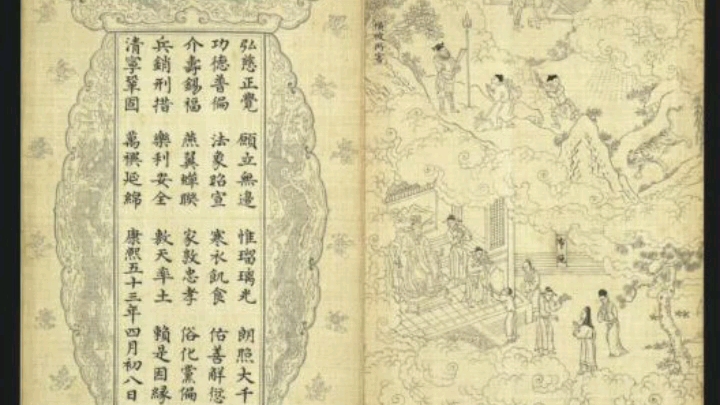 弘慈正覺 願立無邊 惟瑠璃光 朗照大千
功德普徧 法象昭宣 寒衣飢食 佑善解愆
介壽錫福 燕翼蟬聯 家敦忠孝 俗化黨偏
兵銷刑措 樂利安全 敷天率土 賴是因緣
清寧鞏固 萬禩延綿 康熙五十三年四月初八日